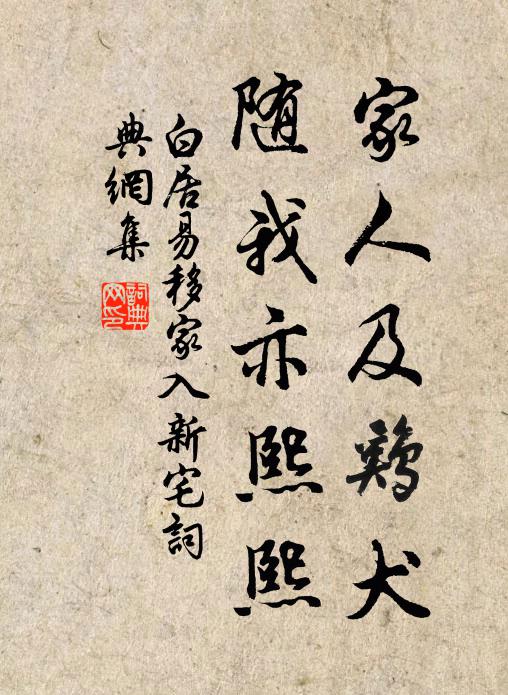 家人及鷄犬
随我亦熙熙
白居易移家入新宅詞
典網集
詞典
网印